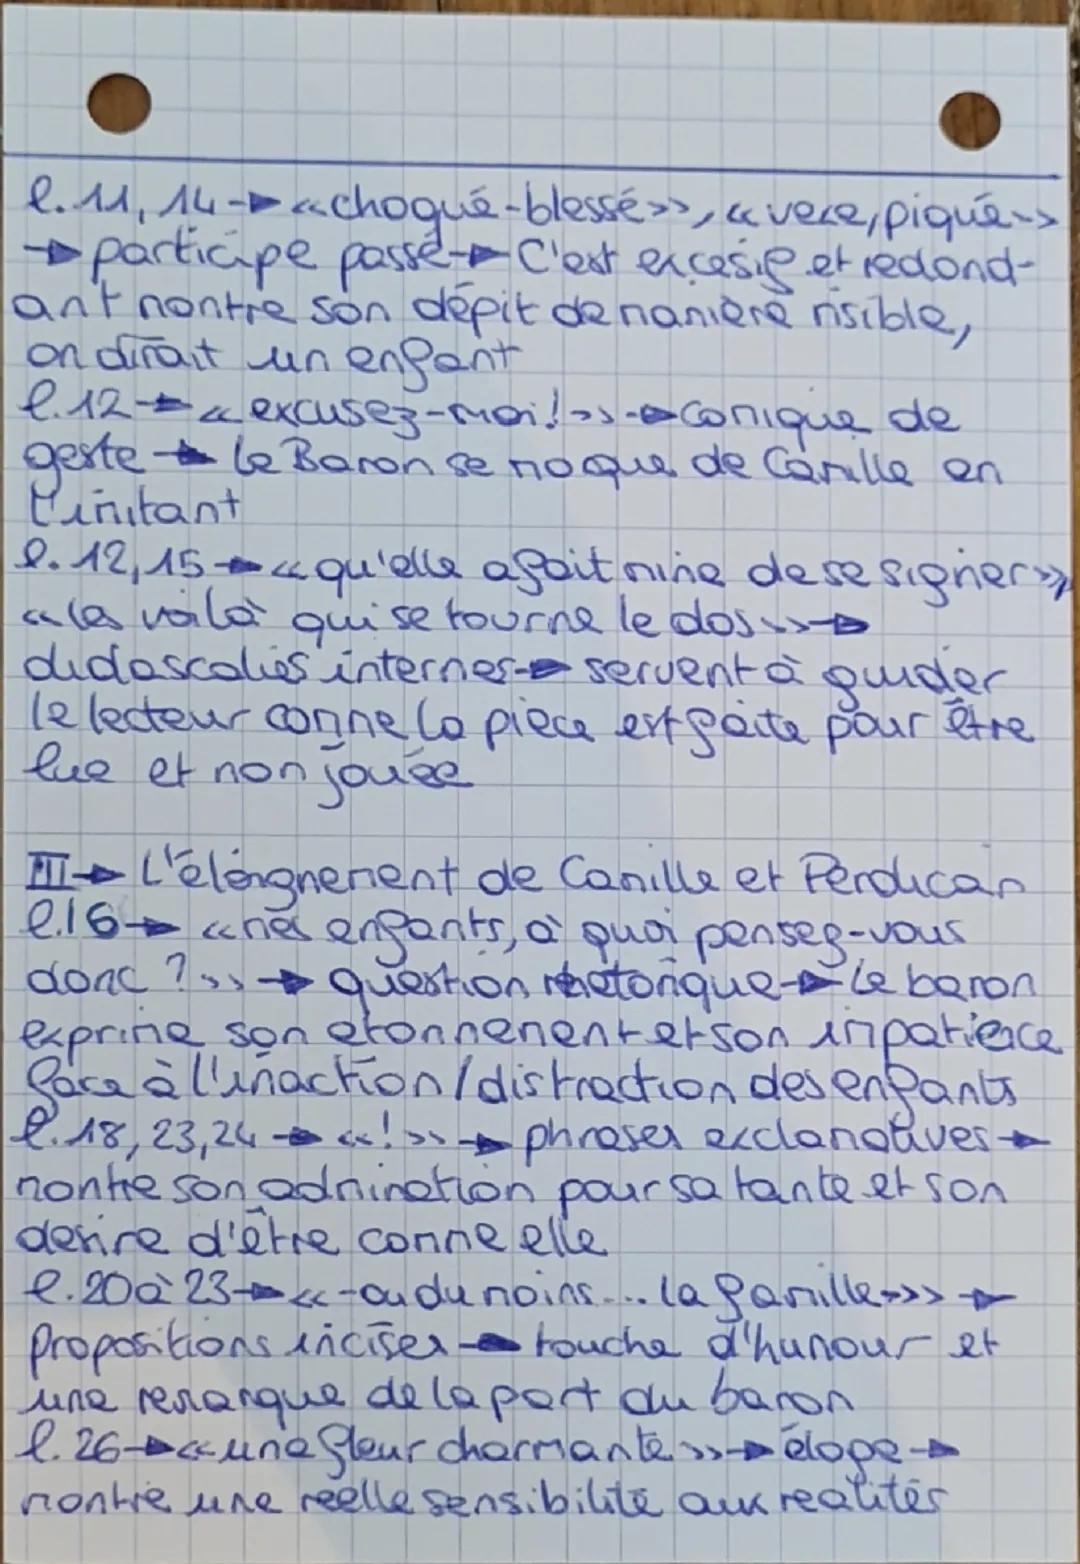 l.11, 14→ «choqué-blessé», «vexé, piqué»
→ participe passé→ C'est excesif et redond-
ant montre son dépit de manière risible,
on dirait un enfant
l.12→ «excusez-moi!»→comique de
geste → le Baron se moque de Camille en
l'imitant
l.12,15→«qu'elle a fait mine de se signer»,
«les voilà qui se tourne le dos»→
didascalies internes→ servent à guider
le lecteur comme la pièce est faite pour être
lue et non jouée
III→ L'éloignement de Camille et Perdican
l.16→ «mes enfants, à quoi pensez-vous
donc ?»→ question rhétorique→ Le baron
exprime son étonnement et son impatience
face à l'inaction/distraction des enfants
l.18,23,24→ «!»→ phrases exclamatives→
montre son admiration pour sa tante et son
desire d'être comme elle
l.20à 23→ «-ou du moins... la famille-»→
propositions incises→ touche d'humour et
une remarque de la part du baron
l.26→«une fleur charmante»→ éloge→
montre une réelle sensibilité aux réalités